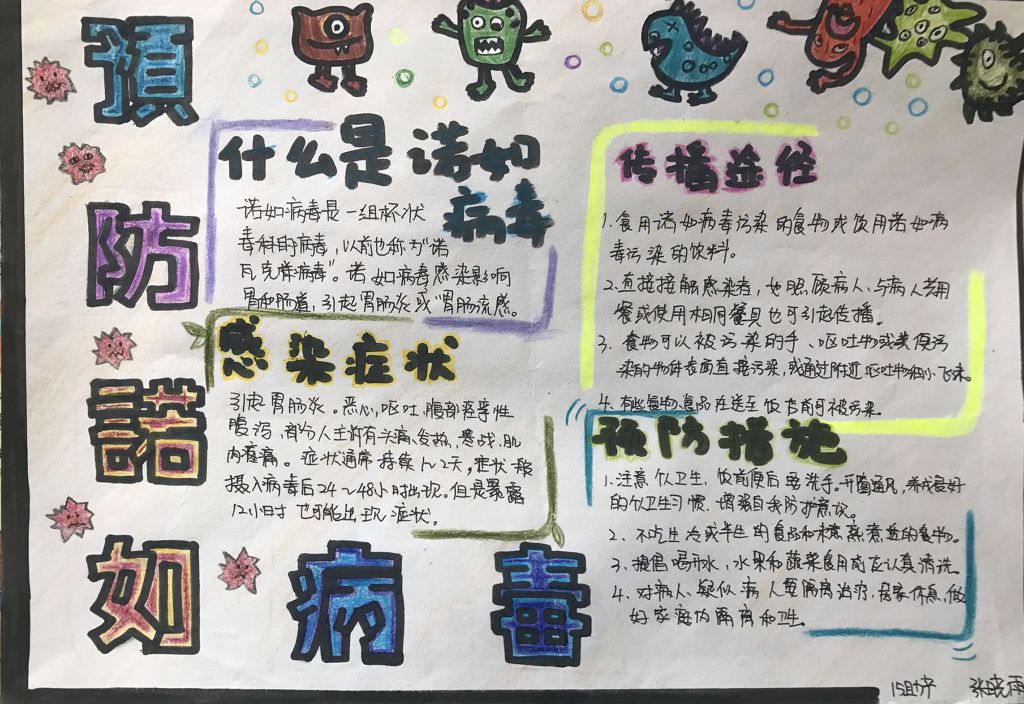 預
防
諾
如
病
毒
什么是诺如
病毒
诺如病毒是一组杯状
毒科的病毒，以前也称为"诺
瓦克样病毒"。诺如病毒感染影响
胃和肠道，引起胃肠炎或"胃肠流感。
感染症状
引起胃肠炎。恶心，呕吐，腹部痉挛性
腹泻，部分人主诉有头痛、发热、寒战、肌
肉疼痛。症状通常持续1～2天，症状一般
摄入病毒后24～48小时出现。但是暴露
12小时 也可能出现 症状。
传播途径
1. 食用诺如病毒污染的食物或饮用诺如病
毒污染的饮料。
2.直接接触感染者，如照顾病人、与病人共用
餐或使用相同餐具也可引起传播。
3. 食物可以被污染的手、呕吐物或粪便污
染的物体表面直接污染，或通过附近呕吐物细小飞沫。
4. 有些食物食品在送至饭店前可被污染。
预防措施
1.注意饮卫生，饭前便后要洗手。开窗通风，养成良好
的饮卫生习惯，增强自我防护意识。
2. 不吃生冷或半生的食品和未煮熟煮透的食物。
3. 提倡喝开水，水果和蔬菜食用前应认真清洗
4. 对病人、疑似病人要隔离治疗，居家休息，做
好家庭内隔离和卫生。
15助产 张晓雨